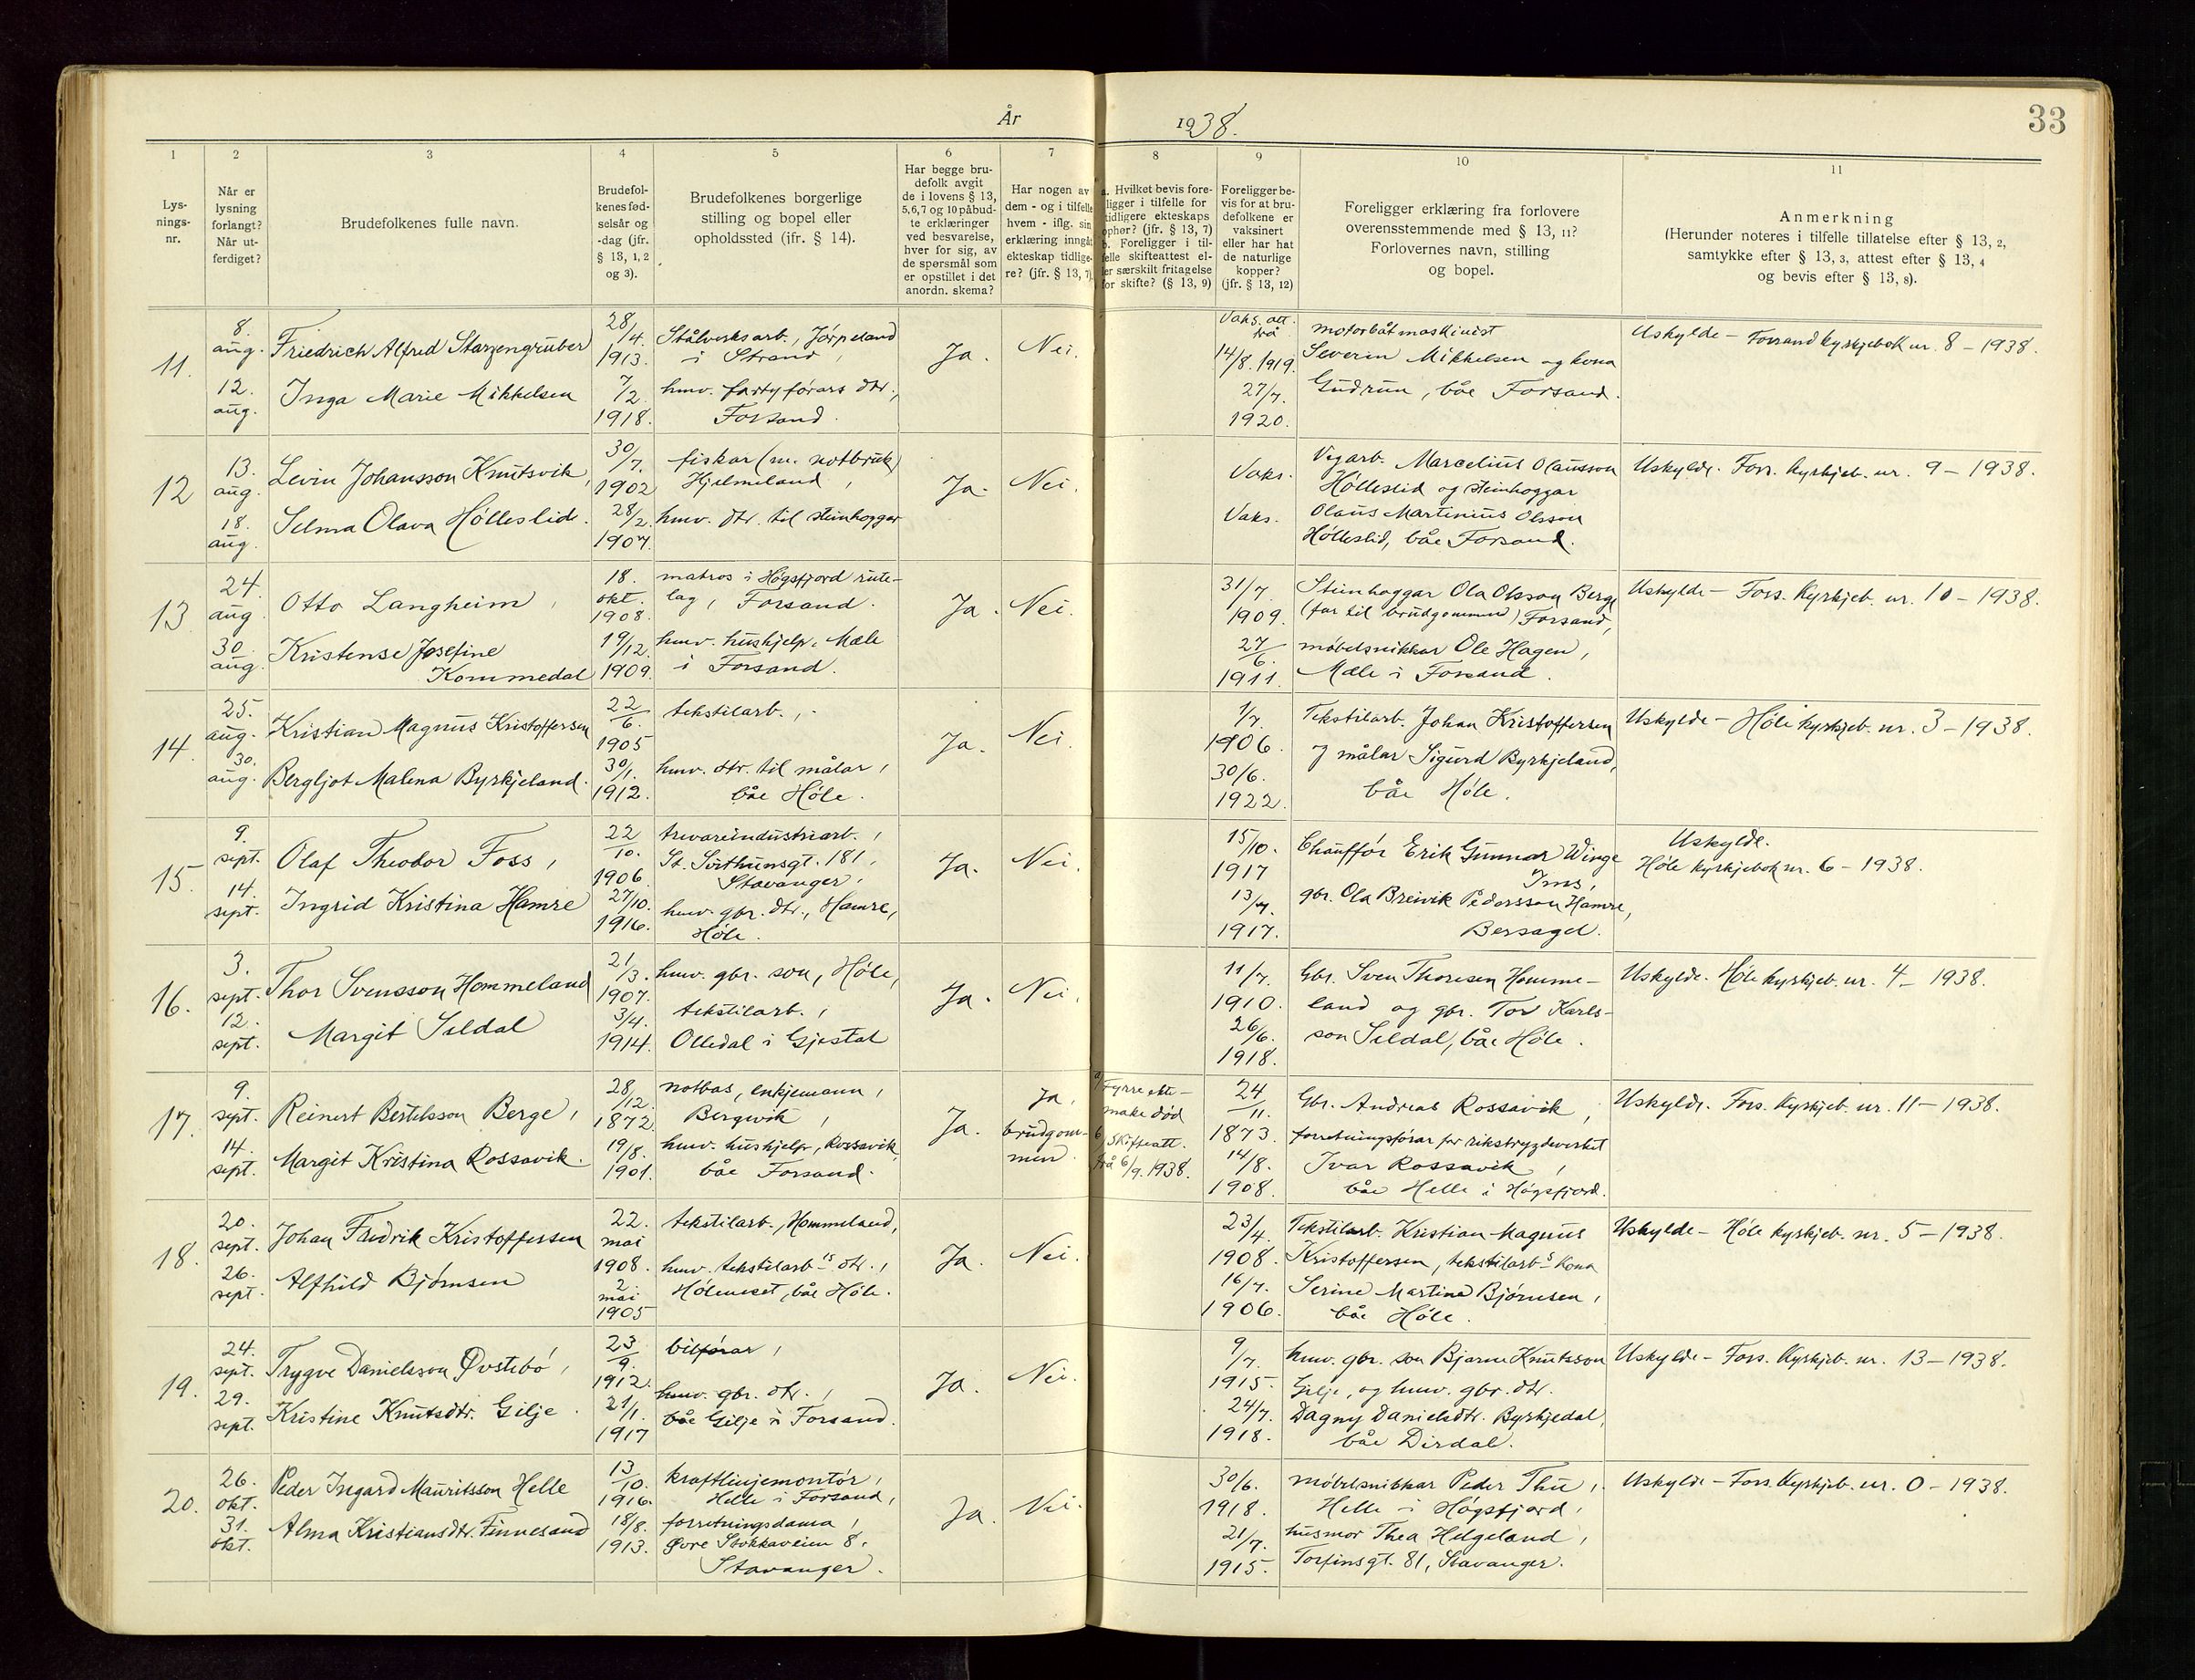 År 1938.
33
1 2 3 4 5 6 7 8 9 10 11
Lys-
nings-
nr.
Når er
lysning
forlangt?
Når ut-
ferdiget?
Brudefolkenes fulle navn.
Brudefol-
kenes fød-
selsår og
-dag (jfr.
§ 13, 1, 2
og 3).
Brudefolkenes borgerlige
stilling og bopel eller
opholdssted (ifr. § 14).
Har begge bru-
defolk avgit
de i lovens § 13,
5,6,7 og 10 påbud-
te erklæringer
ved besvarelse,
hver for sig, av
de spørsmål som
er opstillet i det
anordn. skema?
Har nogen av
dem - og i tilfelle
hvem - iflg. sin
erklæring inngått
ekteskap tidlige-
re? (jfr. § 13, 7)
a. Hvilket bevis fore-
ligger i tilfelle for
tidligere ekteskaps
ophør? (jfr. § 13, 7)
b. Foreligger i til-
felle skifteattest el-
ler særskilt fritagelse
for skifte? (§ 13, 9)
Foreligger be-
vis for at bru-
defolkene er
vaksinert
eller har hat
de naturlige
kopper?
(jfr. § 13, 12)
Foreligger erklæring fra forlovere
overensstemmende med § 13, 11?
Forlovernes navn, stilling
og bopel.
Anmerkning
(Herunder noteres i tilfelle tillatelse efter § 13, 2,
samtykke efter § 13, 3, attest efter § 13, 4
og bevis efter § 13, 8).
11.
8.
aug.
12.
aug.
Friedrich Alfred Starzengruber
Inga Marie Mikkelsen
28/4.
1913.
7/2.
1918.
Stålverksarb., Jørpeland
i Strand,
hmv. fartyførars dtr.,
Forsand.
Ja.
Nei.
Vaks. att.
frå
14/8. 1919.
27/7.
1920.
motorbåtmaskinist
Severin Mikkelsen og kona
Gudrun, båe Forsand.
Uskylde - Forsand kyrkjebok nr. 8 - 1938.
12
13.
aug.
18.
aug.
Levin Johansson Knutsvik,
Selma Olava Hølleslid.
30/7.
1902
28/2.
1907.
fiskar (m. notbruk)
Hjelmeland,
hmv. dtr. til steinhoggar
Ja.
Nei.
Vaks.
Vaks.
Vegarb. Marcelius Olausson
Hølleslid og steinhoggar
Olaus Martinius Olsson
Hølleslid, båe Forsand.
Uskylde. Fors. kyrkjeb. nr. 9 - 1938.
13
24.
aug
30.
aug.
Otto Langheim,
Kristense Josefine
Kommedal
18.
okt.
1908.
19/12.
1909.
matros i Høgsfjord rute-
lag, Forsand.
hmv. hushjelp, Mæle
i Forsand.
Ja.
Nei.
31/7.
1909.
27/6.
1911.
Steinhoggar Ola Olsson Berge
(far til brudgommen) Forsand,
møbelsnikkar Ole Hagen,
Mæle i Forsand.
Uskylde - Fors. kyrkjeb. nr. 10 - 1938.
14.
25.
aug.
30.
aug.
Kristian Magnus Kristoffersen
Bergljot Malena Byrkjeland.
22/6.
1905
30/1.
1912.
tekstilarb.,
hmv. dtr. til målar,
båe Høle.
Ja.
Nei.
1/7.
1906.
30/6.
1922.
Tekstilarb. Johan Kristoffersen
og målar Sigurd Byrkjeland,
båe Høle.
Uskylde - Høle kyrkjeb. nr. 3 - 1938.
15.
9.
sept.
14.
sept.
Olaf Theodor Foss,
Ingrid Kristina Hamre
22/10.
1906.
27/10.
1916.
trevareindustriarb.,
St. Svithunsgt. 181,
Stavanger,
hmv. gbr. dtr., Hamre,
Høle.
Ja.
Nei
15/10.
1917
13/7.
1917.
Chauffør Erik Gunnar Winge
Ims,
gbr. Ola Breivik Pedersson Hamre,
Bersagel.
Uskylde.
Høle kyrkjebok nr. 6 - 1938.
16.
3.
sept.
12.
sept.
Thor Svensson Hommeland
Margit Seldal
21/3.
1907.
3/4.
1914.
hmv. gbr. son, Høle,
tekstilarb.,
Olledal i Gjestal
Ja.
Nei.
11/7.
1910.
26/6.
1918.
Gbr. Sven Thoresen Homme-
land og gbr. Tor Karls-
son Seldal, båe Høle.
Uskylde. Høle kyrkjeb. nr. 4 - 1938.
17.
9.
sept.
14.
sept.
Reinert Bertelsson Berge,
Margit Kristina Rossavik.
28/12.
1872.
19/8.
1901.
notbas, enkjemann,
Bergevik,
hmv. hushjelp, Rossavik,
båe Forsand.
Ja.
Ja,
brudgom-
men.
a/ Fyrre ekte-
make død
b/ Skifteatt.
frå 6/9. 1938.
24/11.
1873.
14/8.
1908.
Gbr. Andreas Rossavik,
forretningsførar for rikstrygdeverket
Ivar Rossavik,
båe Helle i Høgsfjord.
Uskylde. Fors. kyrkjeb. nr. 11 - 1938.
18.
20.
sept.
26.
sept.
Johan Fredrik Kristoffersen
Alfhild Bjørnsen
22.
mai
1908.
2.
mai
1905
tekstilarb., Hommeland,
hmv. tekstilarb-rs dtr.,
Høleneset, båe Høle.
Ja.
Nei.
23/4.
1908.
16/7.
1906.
Tekstilarb. Kristian Magnus
Kristoffersen, tekstilarb-s kona
Serine Martine Bjørnsen,
båe Høle.
Uskylde - Høle kyrkjeb. nr. 5 - 1938.
19.
24.
sept.
29.
sept.
Trygve Danielsson Øvstebø,
Kristine Knutsdtr. Gilje.
23/9.
1912.
21/1.
1917
bilførar,
hmv. gbr. dtr.,
båe Gilje i Forsand.
Ja.
Nei.
9/7.
1915.
24/7.
1918.
hmv. gbr. son Bjarne Knutsson
Gilje, og hmv. gbr. dtr.
Dagny Danielsdtr. Byrkjedal,
båe Dirdal.
Uskylde - Fors. kyrkjeb. nr. 13 - 1938.
20.
26.
okt.
31.
okt.
Peder Ingard Mauritsson Helle
Alma Kristiansdtr. Finnesand
13/10.
1916.
18/8.
1913.
kraftlinjemontør,
Helle i Forsand,
forretningsdama,
Øvre Stokkaveien 8,
Stavanger.
Ja.
Nei.
30/6.
1918.
21/7.
1915.
møbelsnikkar Peder Thu,
Helle i Høgsfjord,
husmor Thea Helgeland,
Torfinsgt. 81, Stavanger.
Uskylde - Fors. kyrkjeb. nr. 0 - 1938.